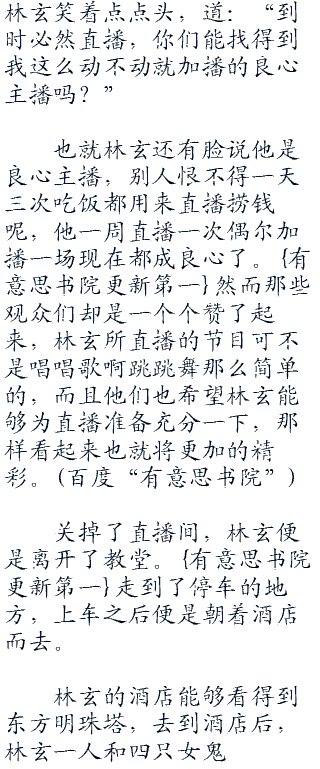 林玄笑着点点头，道：“到
时必然直播，你们能找得到
我这么动不动就加播的良心
主播吗？”
也就林玄还有脸说他是
良心主播，别人恨不得一天
三次吃饭都用来直播捞钱
呢，他一周直播一次偶尔加
播一场现在都成良心了。{有
意思书院更新第一}然而那些
观众们却是一个个赞了起
来，林玄所直播的节目可不
是唱唱歌啊跳跳舞那么简单
的，而且他们也希望林玄能
够为直播准备充分一下，那
样看起来也就将更加的精
彩。(百度“有意思书院”)
关掉了直播间，林玄便
是离开了教堂。{有意思书院
更新第一}走到了停车的地
方，上车之后便是朝着酒店
而去。
林玄的酒店能够看得到
东方明珠塔，去到酒店后，
林玄一人和四只女鬼